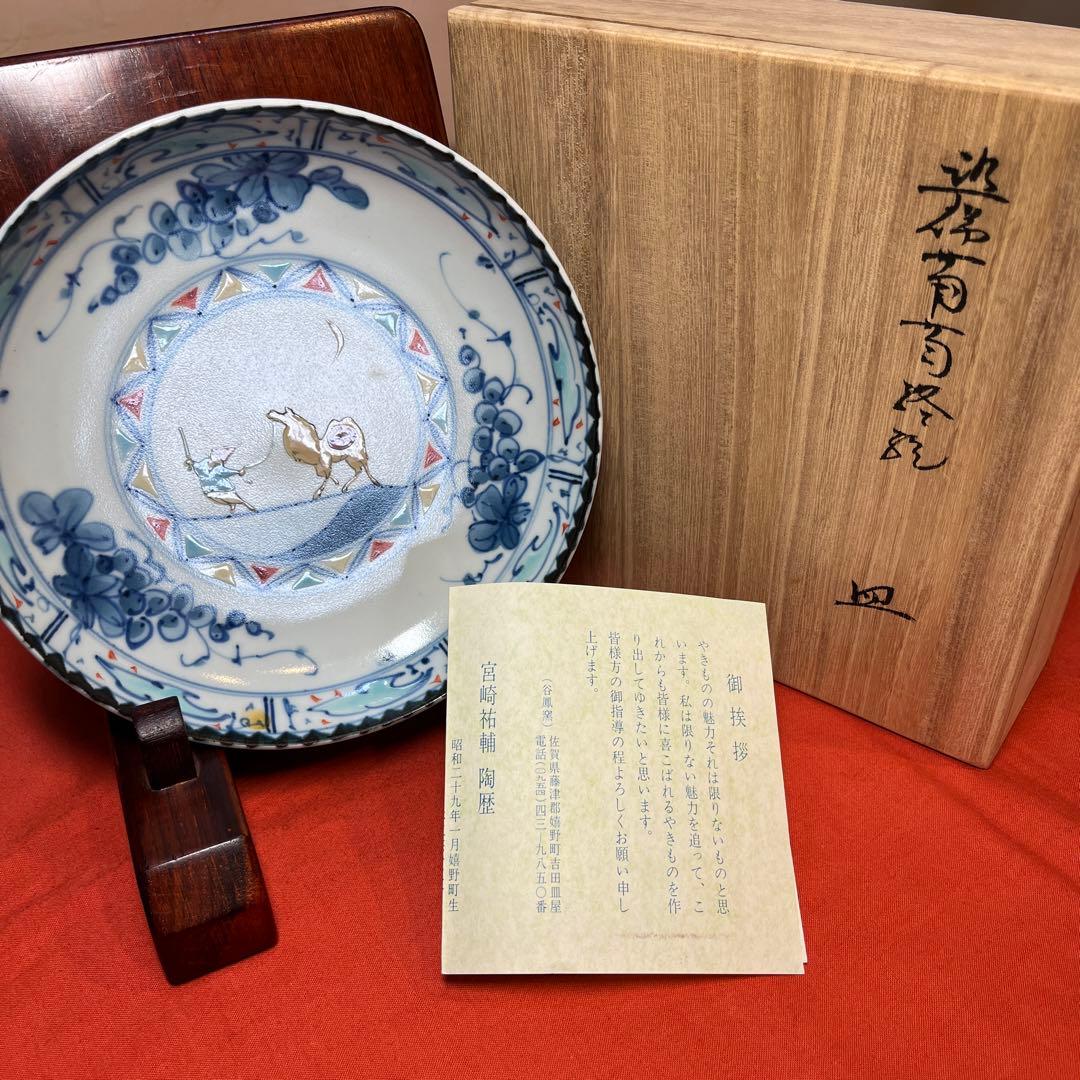 皿
御挨拶
やきものの魅力それは限りないものと思
います。私は限りない魅力を追って、こ
れからも皆様に喜こばれるやきものを作
り出してゆきたいと思います。
皆様方の御指導の程よろしくお願い申し
上げます。
(谷鳳窯) 佐賀県藤津郡嬉野町吉田皿屋
電話(〇九五四)四三―九八五〇番
宮崎祐輔 陶歴
昭和二十九年一月嬉野町生